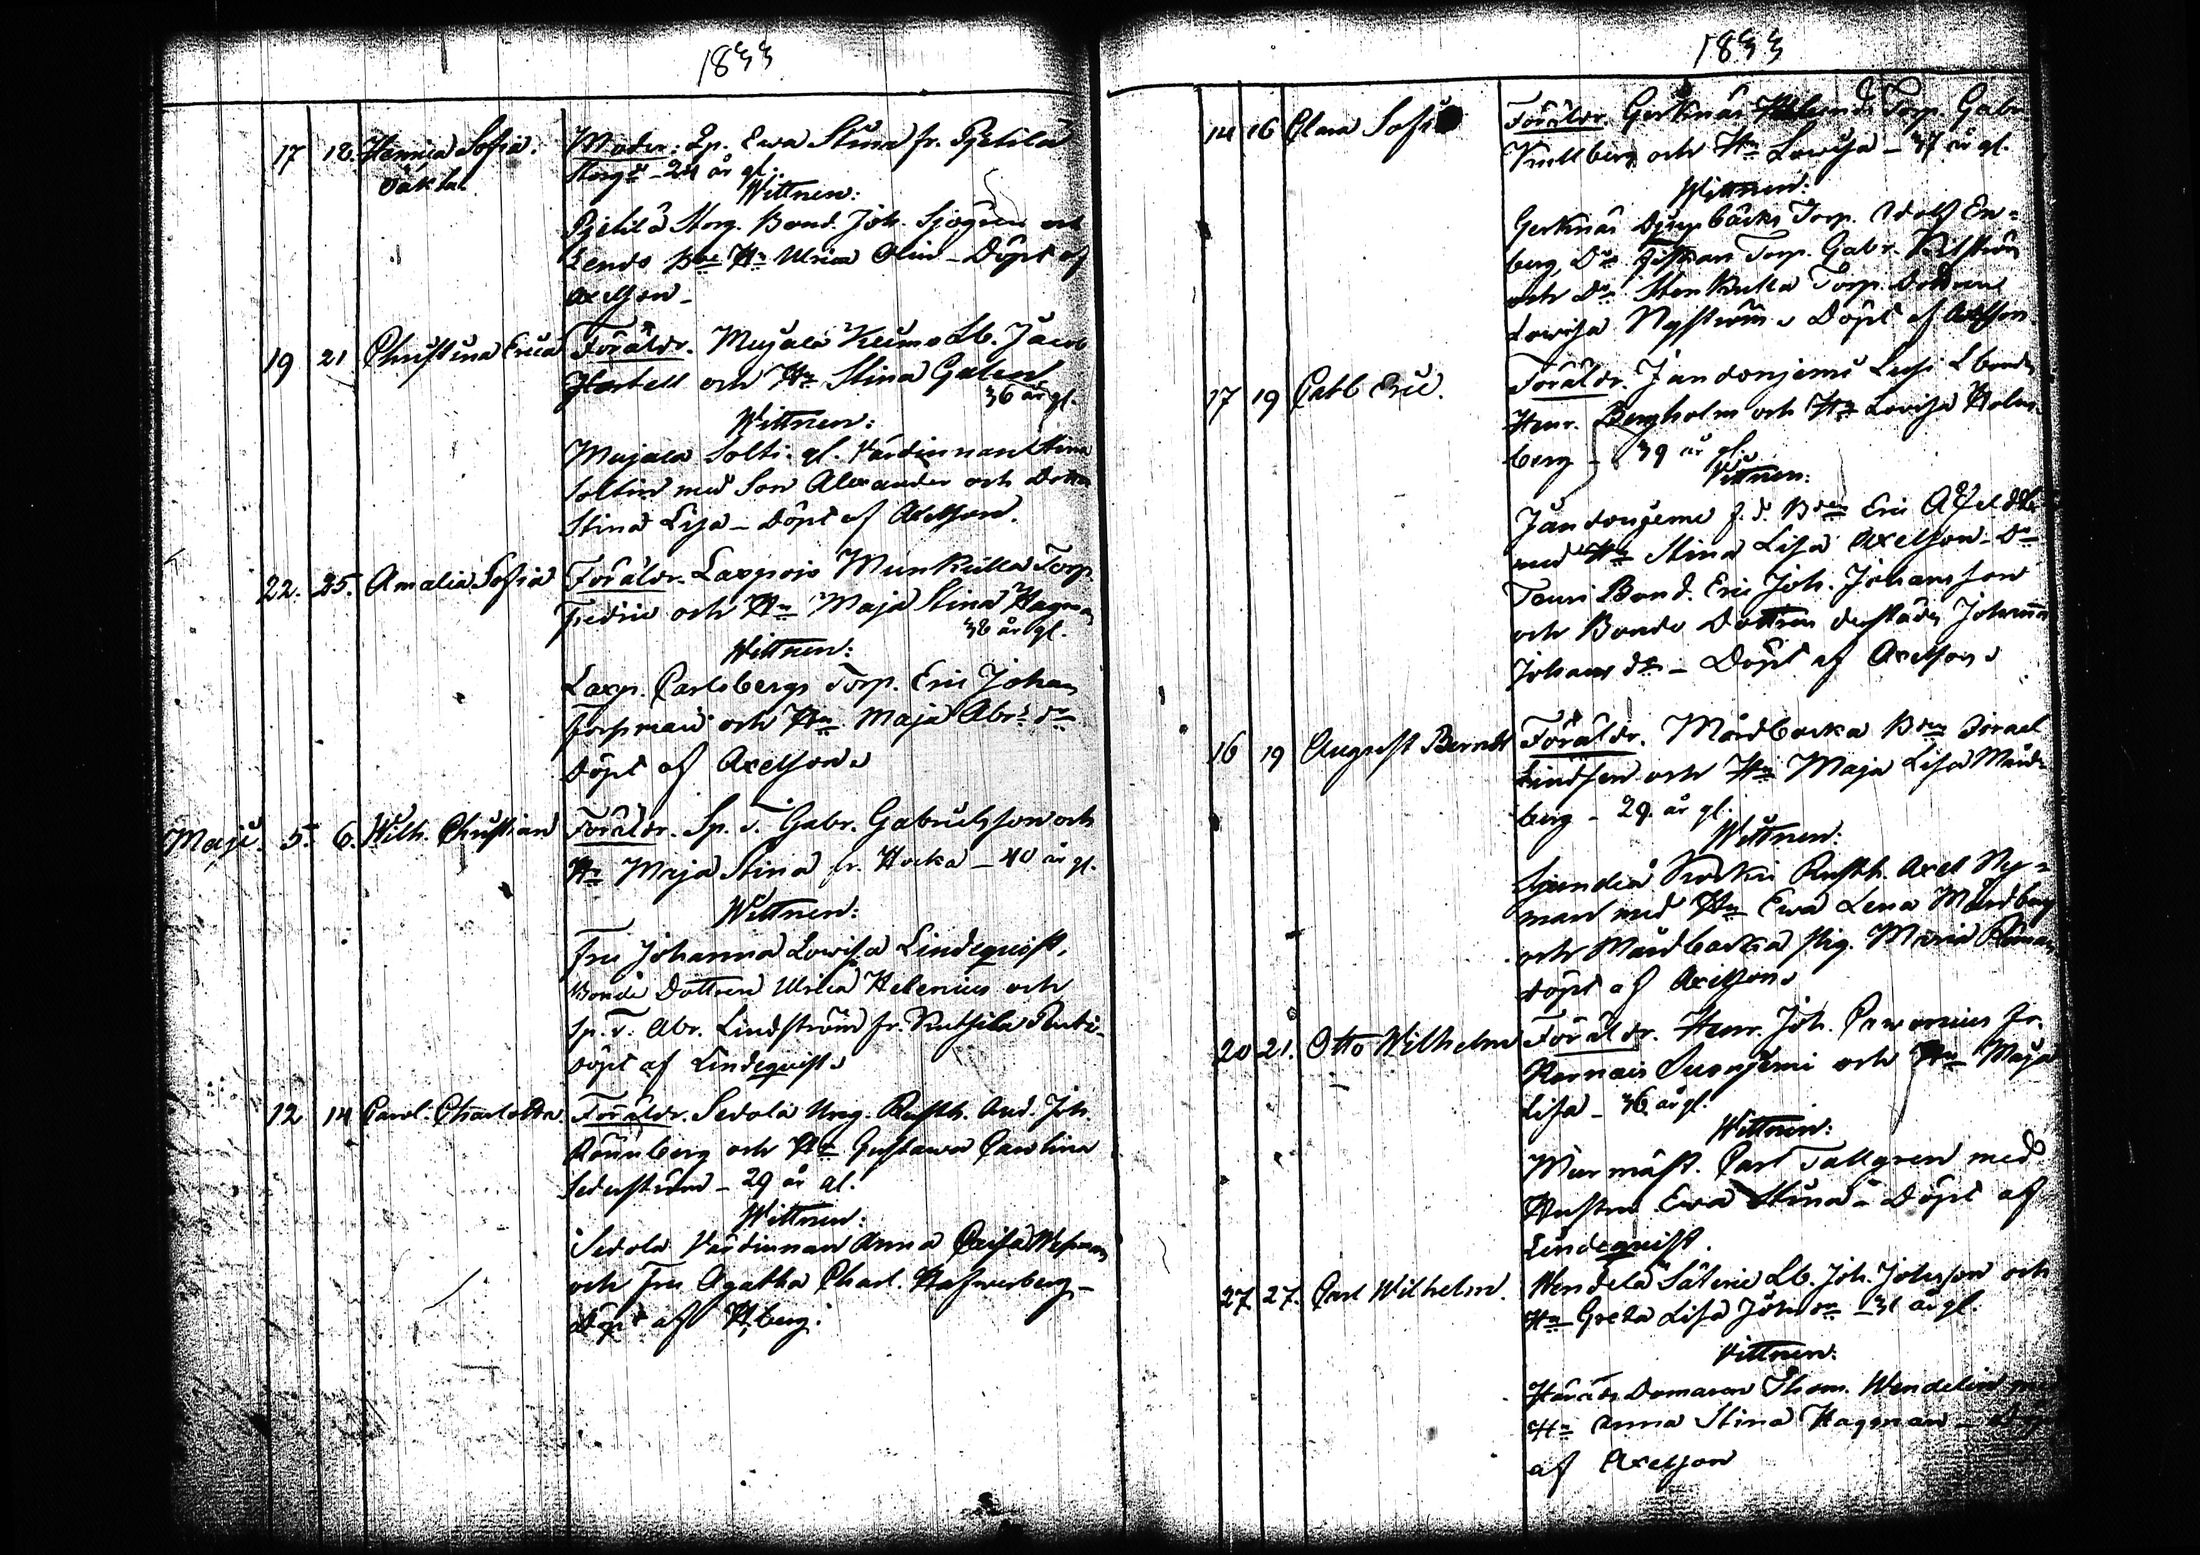 1833
17 18. Henrica Sofia. Moder: Ip. Ewa Stina fr. Pjetilä
oäkta Storg - 24 år gl.
Wittnen:
Pjetilä Storg. Bond. Joh. Sjögren och
Hu Ulrica - Döpt af
Axelson -
19 21 Christina Erica Föräldr. Mujala Lb. Jacob
och Hu Stina Galen
36 år gl.
Wittnen:
Mujala Solti gl. Värdinnan Stina
Soltin med Son Alexander och Dottr
Stina Lisa - Döpt af Axelson.
22. 25. Amalia Sofia Föräldr. Laxpojo Munkulla Torp.
Fredric och Hu Maja Stina Hagman
38 år gl.
Wittnen:
Laxp. Carlsbergs Torp. Eric Johan
Forsman och Hu Maja Abr. dr
Döpt af Axelson
Maji. 5. 6. Wilh. Christian Föräldr. Sp. T. Gabr. Gabrielsson och
Hu Maja Stina fr. Horka - 40 år gl.
Wittnen:
Fru Johanna Lowisa Lindequist,
Bonde Dottren Ulrica Helenius och
Sp. T. Abr. Lindström fr.
Döpt af Lindequist
12 14 Carol. Charlotta. Föräldr. Sedola Ung. Rusth. And. Joh.
Rönnberg och Hu Gustawa Carolina
Sederström - 29 år gl.
Wittnen:
Sedola Värdinnan Anna Caisa
och Fru Agatha Charl. Hafverberg -
Döpt af Hberg.
1833
14 16 Clara Sofia Föräldr. Gerknäs Torp. Gabr.
och Hu Lowisa - 37 år gl.
Wittnen:
Gerknäs Djupbäcks Torp. Adolf En=
berg, Do Torp. Gabr.
och Do Stenkulla Torp. Dottren
Lowisa Nyström Döpt af Axelson.
17 19 Carl Eric. Föräldr. Jandonjemi Lbonde
Henr. Bergholm och Hu Lovisa Holm
berg - 39 år gl.
Wittnen:
Jandonjemi f. d. Bden Eric
med Hu Stina Lisa Axelson - Do
Bond. Eric Joh. Johansson
och Bonde Dottren derstädes Johanna
Johans dr - Döpt af Axelson
16 19 August Berndt Föräldr. Mårdbacka Bden Israel
Lindsen och Hu Maja Lisa Mård=
berg - 29. år gl.
Wittnen:
Rusth. Axel Ny=
man med Hu Ewa Lena Mårdberg
och Mårdbacka pig. Maria
Döpt af Axelson
20 21. Otto Wilhelm Föräldr. Henr. Joh. fr.
Karnais Suonjemi och Hu Maja
Lisa - 36 år gl.
Wittnen:
Murmäst. Carl Tallgren med
Hustru Ewa Stina - Döpt af
Lindequist.
27 27. Carl Wilhelm. Wendelä Säterie Lb. Joh. Johnson och
Hu Greta Lisa Joh. dr - 31 år gl.
Wittnen:
Härads Domaren Thom. Wendelin med
Hu Anna Stina Hagman -
af Axelson